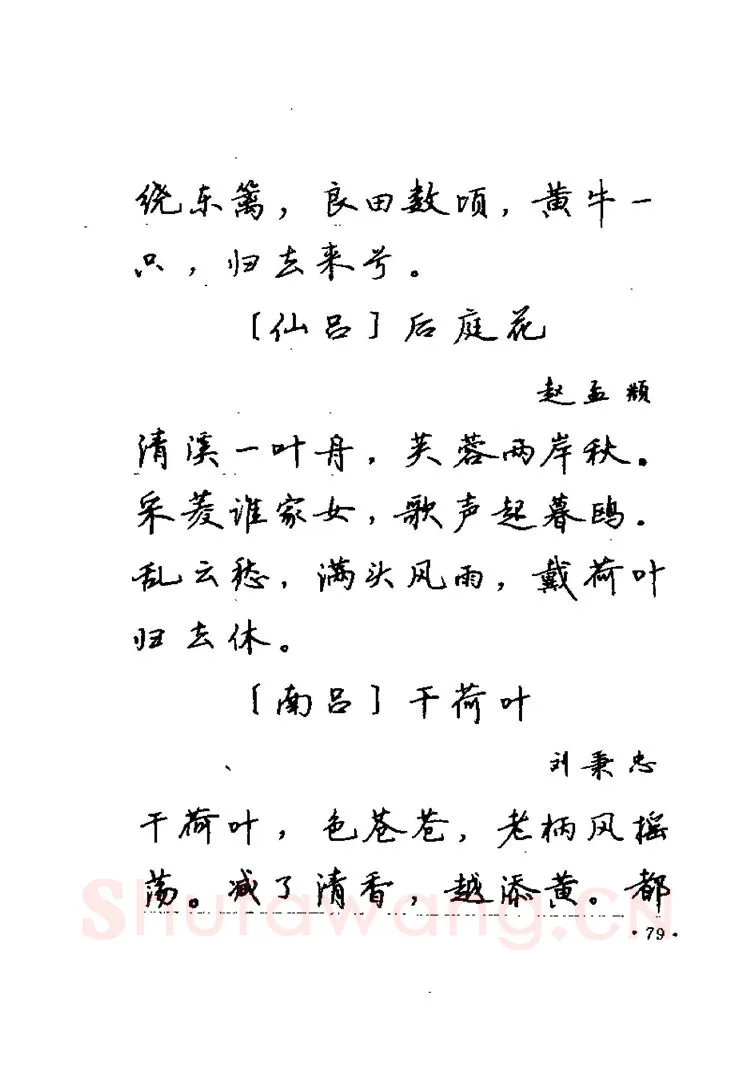 绕东篱，良田数顷，黄牛一
只，归去来兮。
［仙吕］后庭花
赵孟頫
清溪一叶舟，芙蓉两岸秋。
采菱谁家女，歌声起暮鸥。
乱云愁，满头风雨，戴荷叶
归去休。
［南吕］干荷叶
刘秉忠
干荷叶，色苍苍，老柄风摇
荡。减了清香，越添黄。都
Shufawang.CN
·79·